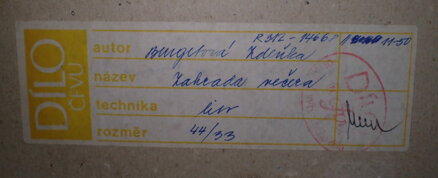 DÍLO
ČFVU
autor Burgetová Zdeňka
název Zahrada večera
technika lin
rozměr 44/33
DÍLO